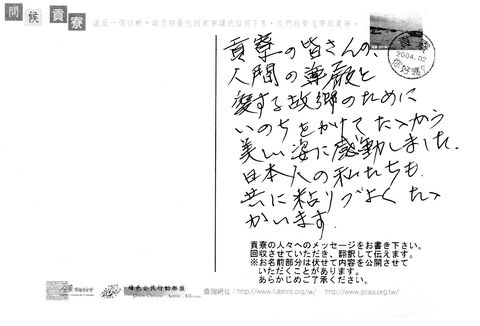 問候貢寮
貢寮
2004.02
你好嗎?
貢寮の皆さんの、
人間の尊厳と
愛する故郷のために
いのちをかけてたゝかう
美しい姿に感動しました.
日本人の私たちも.
共に粘りづよくたゝ
かいます.
貢寮の人々へのメッセージをお書き下さい。
回収させていただき、翻訳して伝えます。
※お名前部分は伏せて内容を公開させて
いただくことがあります。
あらかじめご了承ください。
綠色公民行動聯盟
查詢網址：http://www.fullshot.org.tw/ http://www.gcaa.org.tw/